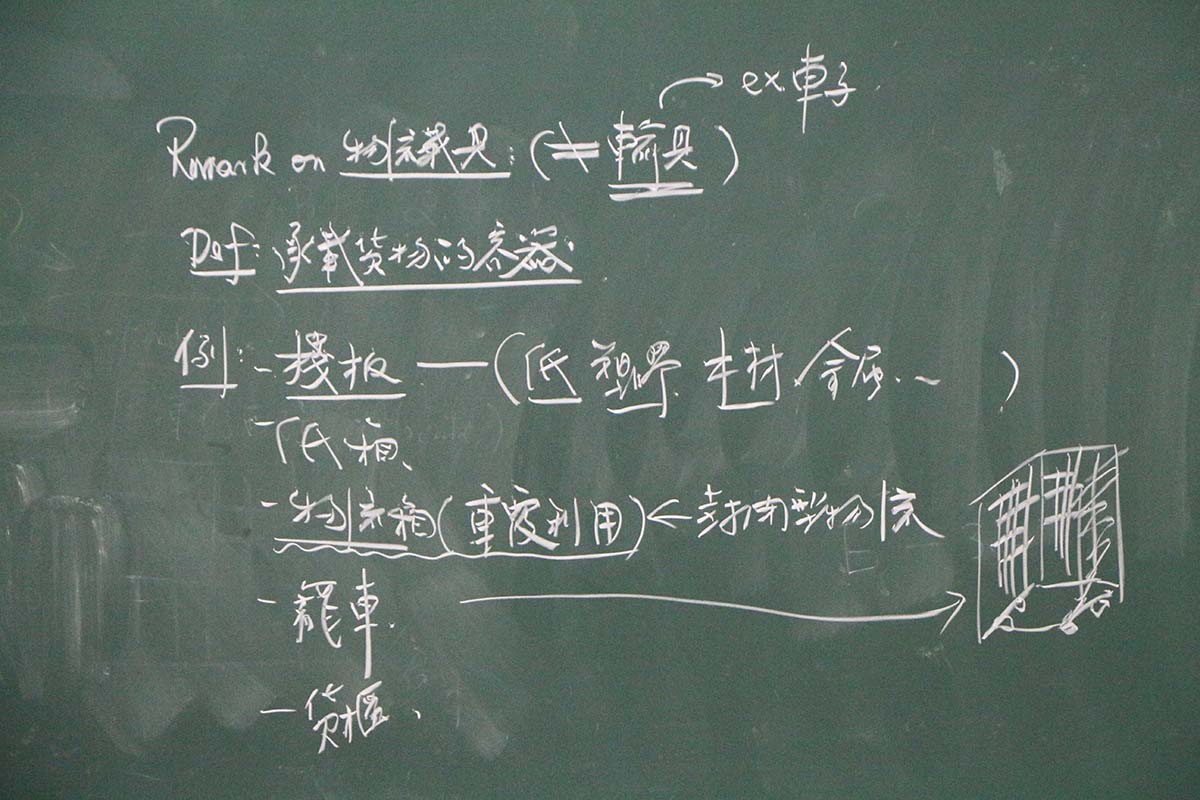 ex. 車子
Remark on 物流載具: (≠ 運輸具)
Def: 承載貨物的容器.
例: - 棧板 — (紙 塑膠 木材 金屬... )
- 紙箱、
- 物流箱 (重複利用) ← 封閉型物流
- 籠車
- 貨櫃、